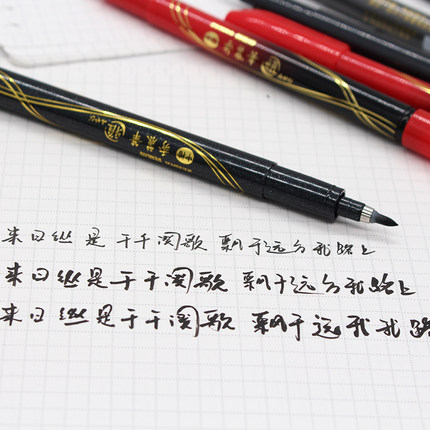 秀丽笔
秀丽笔
来日纵是千千阕歌 飘于远方我路上
来日纵是千千阕歌 飘于远方我路上
来日纵是千千阕歌 飘于远方我路